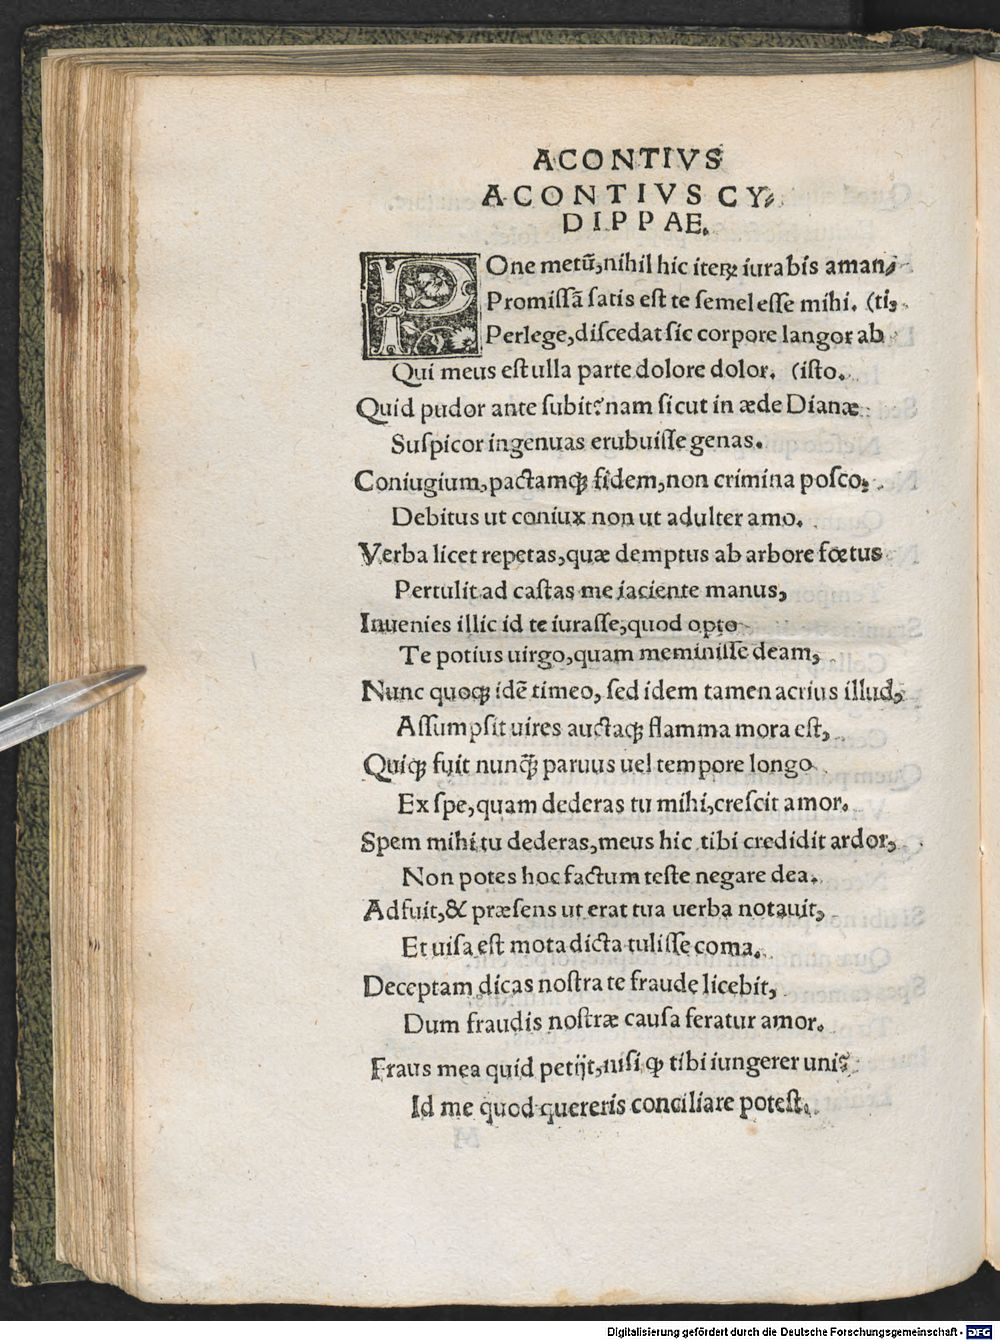 ACONTIVS
ACONTIVS CY⸗
DIPPAE.
POne metū, nihil hic iteꝝ iurabis aman⸗
Promissā satis est te semel esse mihi. (ti,
Perlege, discedat sic corpore langor ab
Qui meus est ulla parte dolore dolor. (isto.
Quid pudor ante subit? nam sicut in æde Dianæ
Suspicor ingenuas erubuisse genas.
Coniugium, pactamqꝫ fidem, non crimina posco:
Debitus ut coniux non ut adulter amo.
Verba licet repetas, quæ demptus ab arbore fœtus
Pertulit ad castas me iaciente manus,
Inuenies illic id te iurasse, quod opto
Te potius uirgo, quam meminisse deam,
Nunc quoqꝫ idē timeo, sed idem tamen acrius illud,
Assumpsit uires auctaqꝫ flamma mora est,
Quiqꝫ fuit nunꝗ̄ paruus uel tempore longo
Ex spe, quam dederas tu mihi, crescit amor.
Spem mihi tu dederas, meus hic tibi credidit ardor,
Non potes hoc factum teste negare dea.
Adfuit, & præsens ut erat tua uerba notauit,
Et uisa est mota dicta tulisse coma.
Deceptam dicas nostra te fraude licebit,
Dum fraudis nostræ causa feratur amor.
Fraus mea quid petijt, nisi ꝙ tibi iungerer uni?
Id me quod quereris conciliare potest.
Digitalisierung gefördert durch die Deutsche Forschungsgemeinschaft - DFG